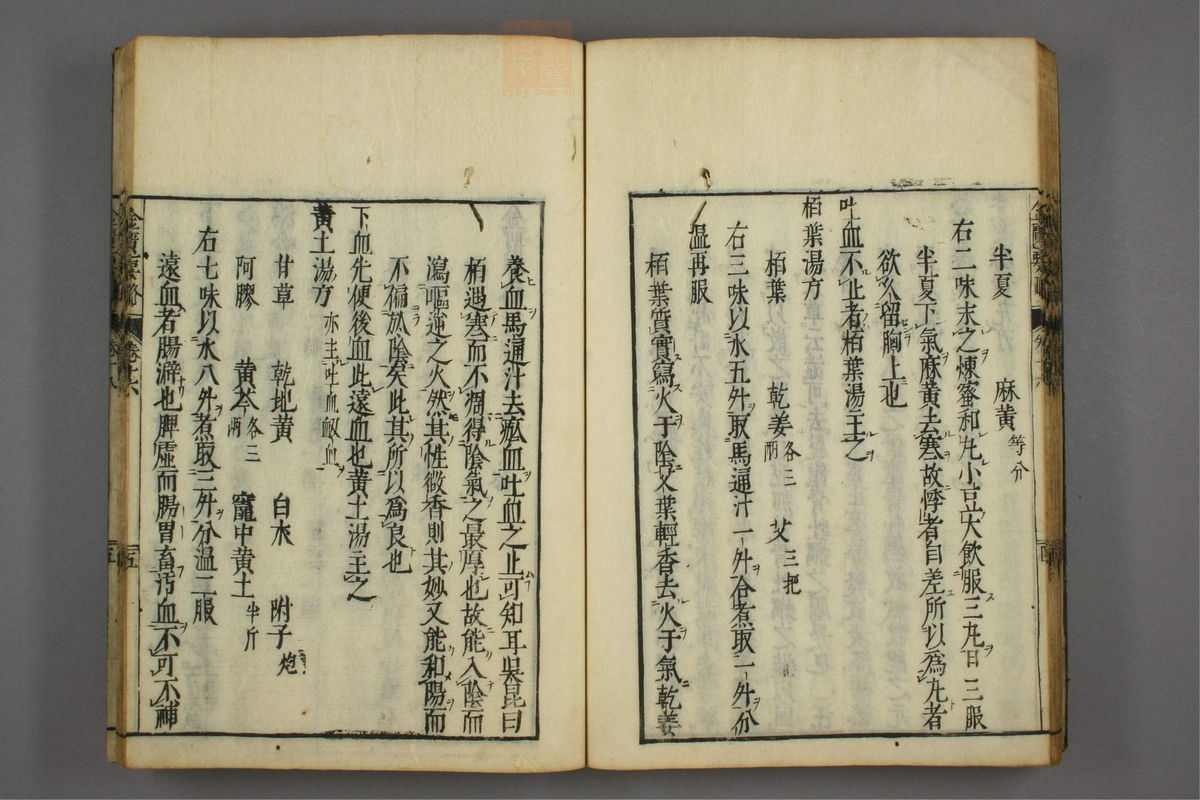 半夏　麻黃等分
右二味末之煉蜜和丸小豆大飲服三丸日三服
半夏下氣麻黃去寒故悸者自差所以爲丸者
欲久留胸上也
吐血不止者栢葉湯主之
栢葉湯方
栢葉　乾姜各三兩　艾三把
右三味以水五升取馬通汁一升合煮取一升分
温再服
栢葉質實寫火于陰艾葉輕香去火于氣乾姜
養血馬通汁去瘀血吐血之止可知耳吳昆曰
栢遇寒而不凋得陰氣之最厚也故能入陰而
瀉嘔逆之火然其性微香則其妙又能和陽而
不偏於陰矣此其所以爲良也
下血先便後血此遠血也黃土湯主之
黃土湯方亦主吐血衂血
甘草　乾地黃　白朮　附子炮
阿膠　黃芩各三兩　竈中黃土半斤
右七味以水八升煮取三升分温二服
遠血者腸澼也脾虛而腸胃畜汚血不可不補